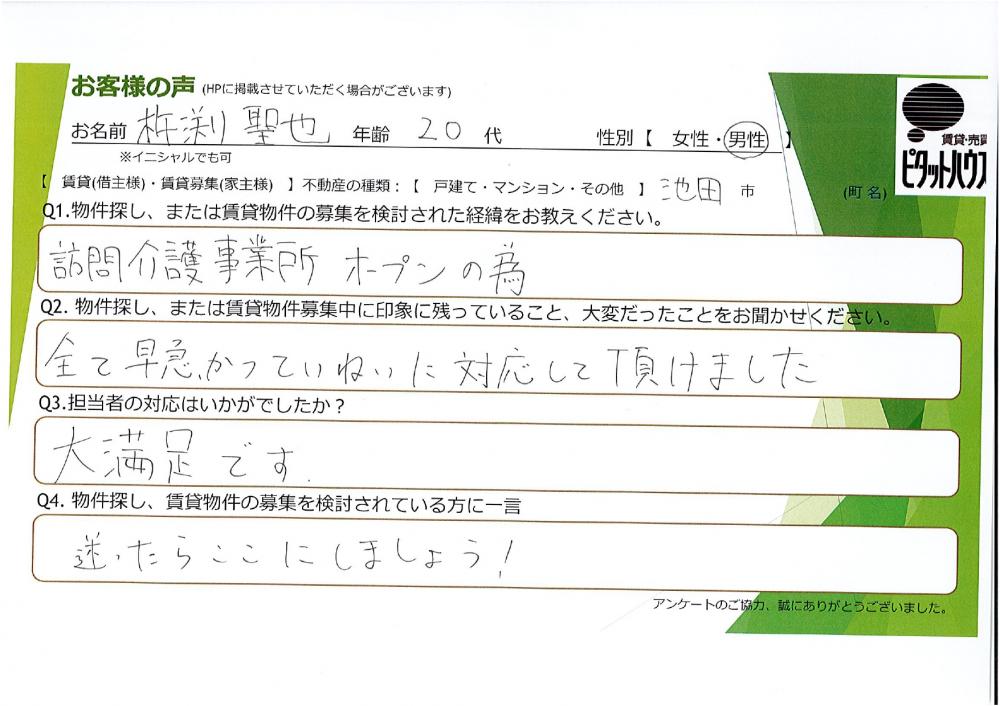 お客様の声 (HPに掲載させていただく場合がございます)
お名前 杵渕 聖也 年齢 20 代 性別【 女性・男性 】
※イニシャルでも可
賃貸・売買
ピタットハウス
【 賃貸(借主様)・賃貸募集(家主様) 】不動産の種類:【 戸建て・マンション・その他 】池田 市 (町名)
Q1.物件探し、または賃貸物件の募集を検討された経緯をお教えください。
訪問介護事業所 オープンの為
Q2. 物件探し、または賃貸物件募集中に印象に残っていること、大変だったことをお聞かせください。
全て早急、かつていねいに対応して頂けました
Q3.担当者の対応はいかがでしたか?
大満足です.
Q4. 物件探し、賃貸物件の募集を検討されている方に一言
迷ったらここにしましょう!
アンケートのご協力、誠にありがとうございました。